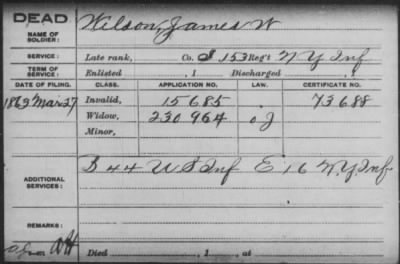 DEAD
NAME OF SOLDIER: Wilson, James W
SERVICE: Late rank, Co. I 153 Reg't N Y Inf
TERM OF SERVICE: Enlisted , 1 Discharged , 1
DATE OF FILING. CLASS. APPLICATION NO. LAW. CERTIFICATE NO.
1863 Mar 27 Invalid, 15685 73688
Widow, 230964 o J
Minor,
ADDITIONAL SERVICES: D 44 U S Inf E 16 N.Y. Inf
REMARKS:
Died , 1 , at